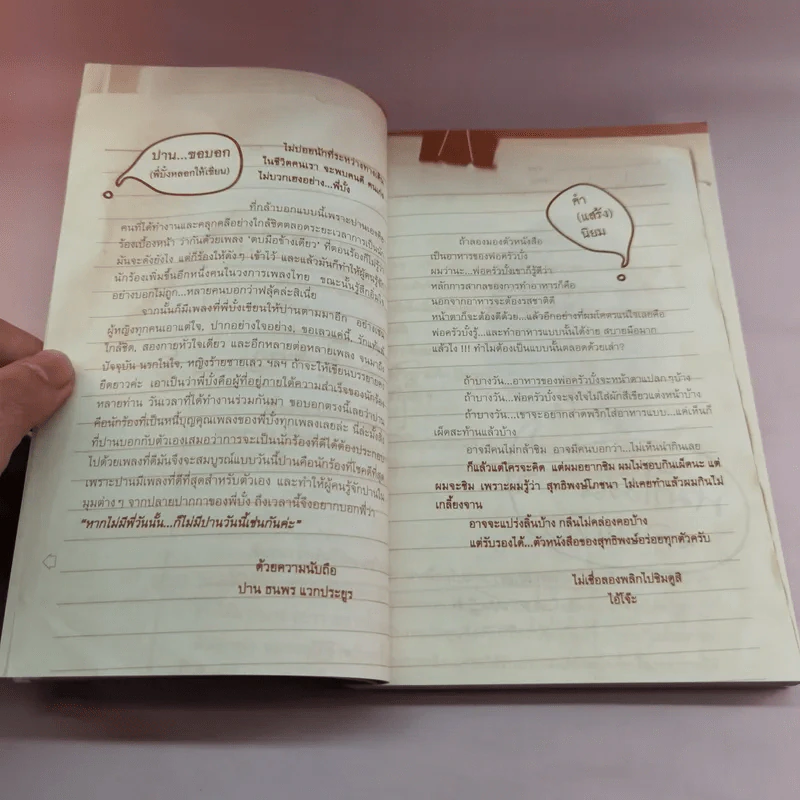 ปาน...ขอบอก
(พี่บั้งหลอกให้เขียน)
ไม่บ่อยนักที่ระหว่างทางเดิน
ในชีวิตคนเรา จะพบคนดี
ไม่บวกเฮงอย่าง...พี่บั้ง
ที่กล้าบอกแบบนี้เพราะปานเองคือ
คนที่ได้ทำงานและคลุกคลีอย่างใกล้ชิดตลอดระยะเวลาการเป็นนัก
ร้องเบื้องหน้า ว่ากันด้วยเพลง 'ตบมือข้างเดียว' ที่ตอนร้องก็ไม่รู้ว่า
มันจะดังยังไง แต่ก็ร้องให้ดังๆ เข้าไว้ และแล้วมันก็ทำให้ผู้คนรู้จัก
นักร้องเพิ่มขึ้นอีกหนึ่งคนในวงการเพลงไทย ขณะนั้นรู้สึก
อย่างบอกไม่ถูก...หลายคนบอกว่าฟลุ้คล่ะสิเนี่ย
จากนั้นก็มีเพลงที่พี่บั้งเขียนให้ปานตามมาอีก อย่างเช่น
ผู้หญิงทุกคนเอาแต่ใจ, ปากอย่างใจอย่าง, ขอเลวแค่นี้,
ใกล้ชิด, สองกายหัวใจเดียว และอีกหลายต่อหลายเพลง จนมาถึง
ปัจจุบัน นรกในใจ, หญิงร้ายชายเลว ฯลฯ ถ้าจะให้เขียนบรรยายคง
ยืดยาวค่ะ เอาเป็นว่าพี่บั้งคือผู้ที่อยู่ภายใต้ความสำเร็จของนักร้อง
หลายท่าน วันเวลาที่ได้ทำงานร่วมกันมา ขอบอกตรงนี้เลยว่าปาน
คือนักร้องที่เป็นหนี้บุญคุณเพลงของพี่บั้งทุกเพลงเลยล่ะ นี่ล่ะมั้งสิ่ง
ที่ปานบอกกับตัวเองเสมอว่าการจะเป็นนักร้องที่ดีได้ต้องประกอบ
ไปด้วยเพลงที่ดีมันจึงจะสมบูรณ์แบบวันนี้ปานคือนักร้องที่โชคดีที่สุด
เพราะปานมีเพลงที่ดีที่สุดสำหรับตัวเอง และทำให้ผู้คนรู้จักปานใน
มุมต่างๆ จากปลายปากกาของพี่บั้ง ถึงเวลานี้จึงอยากบอกพี่ว่า
"หากไม่มีพี่วันนั้น...ก็ไม่มีปานวันนี้เช่นกันค่ะ"
ด้วยความนับถือ
ปาน ธนพร แวกประยูร
คำ
(แสร้ง)
นิยม
ถ้าลองมองตัวหนังสือ
เป็นอาหารของพ่อครัวบั้ง
ผมว่านะ...พ่อครัวบั้งเขาก็รู้ดีว่า
หลักการสากลของการทำอาหารก็คือ
นอกจากอาหารจะต้องรสชาติดี
หน้าตาก็จะต้องดีด้วย...แล้วอีกอย่างที่ผมโคตรแน่ใจเลยคือ
พ่อครัวบั้งรู้...และทำอาหารแบบนั้นได้ง่าย สบายมือมาก
แล้วไง !!! ทำไมต้องเป็นแบบนั้นตลอดด้วยเล่า?
ถ้าบางวัน...อาหารของพ่อครัวบั้งจะหน้าตาแปลกๆบ้าง
ถ้าบางวัน...พ่อครัวบั้งจะจงใจไม่ใส่ผักสีเขียวแต่งหน้าบ้าง
ถ้าบางวัน...เขาจะอยากสาดพริกใส่อาหารแบบ...แค่เห็นก็
เผ็ดสะท้านแล้วบ้าง
อาจมีคนไม่กล้าชิม อาจมีคนบอกว่า...ไม่เห็นน่ากินเลย
ก็แล้วแต่ใครจะคิด แต่ผมอยากชิม ผมไม่ชอบกินเผ็ดนะ แต่
ผมจะชิม เพราะผมรู้ว่า สุทธิพงษ์โภชนา ไม่เคยทำแล้วผมกินไม่
เกลี้ยงจาน
อาจจะแปร่งลิ้นบ้าง กลืนไม่คล่องคอบ้าง
แต่รับรองได้...ตัวหนังสือของสุทธิพงษ์อร่อยทุกตัวครับ
ไม่เชื่อลองพลิกไปชิมดูสิ
ไอ้โจ๊ะ